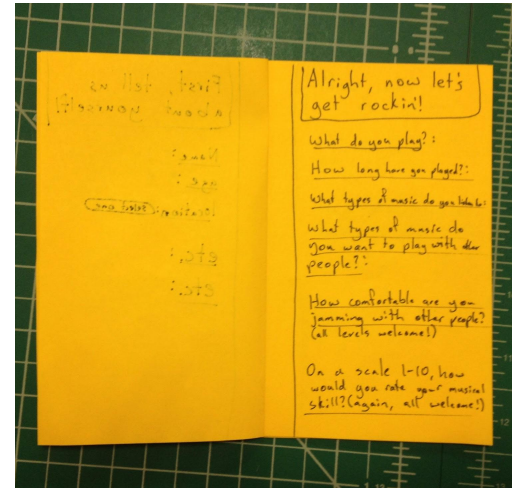 First, tell us
about yourself!
Name:
age:
location: (select one)
etc.:
etc.:
Alright, now let's
get rockin'!
What do you play?:
How long have you played?:
What types of music do you listen to:
What types of music do
you want to play with other
people?:
How comfortable are you
jamming with other people?
(all levels welcome!)
On a scale 1-10, how
would you rate your musical
skill? (again, all welcome!)